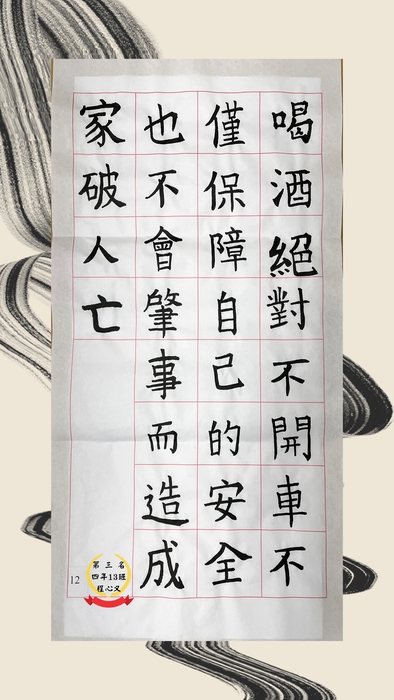 喝酒絕對不開車不
僅保障自己的安全
也不會肇事而造成
家破人亡
12
第三名
四年13班
程心又